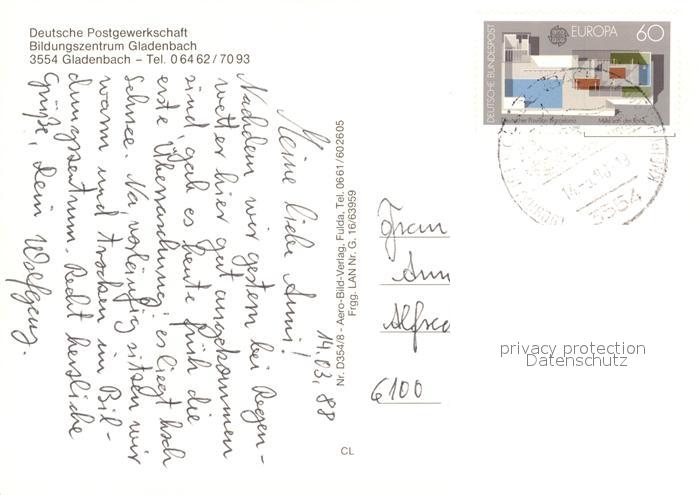 Deutsche Postgewerkschaft
Bildungszentrum Gladenbach
3554 Gladenbach – Tel. 0 64 62 / 70 93
14.03.88
Meine liebe Anni!
Nachdem wir gestern bei Regen-
wetter hier gut angekommen
sind, gab es heute früh die
erste Überraschung, es liegt hoch
Schnee. Na, vorläufig sitzen wir
warm und trocken im Bil-
dungszentrum. Recht herzliche
Grüße, Dein Wolfgang.
Nr. D354/8 - Aero-Bild-Verlag, Fulda, Tel. 0661/602605
Frgg. LAN Nr. G. 16/63959
CL
DEUTSCHE BUNDESPOST
EUROPA 60
Deutscher Pavillon Barcelona Mies van der Rohe
3554
Frau
Ann
Alfred
6100
privacy protection
Datenschutz